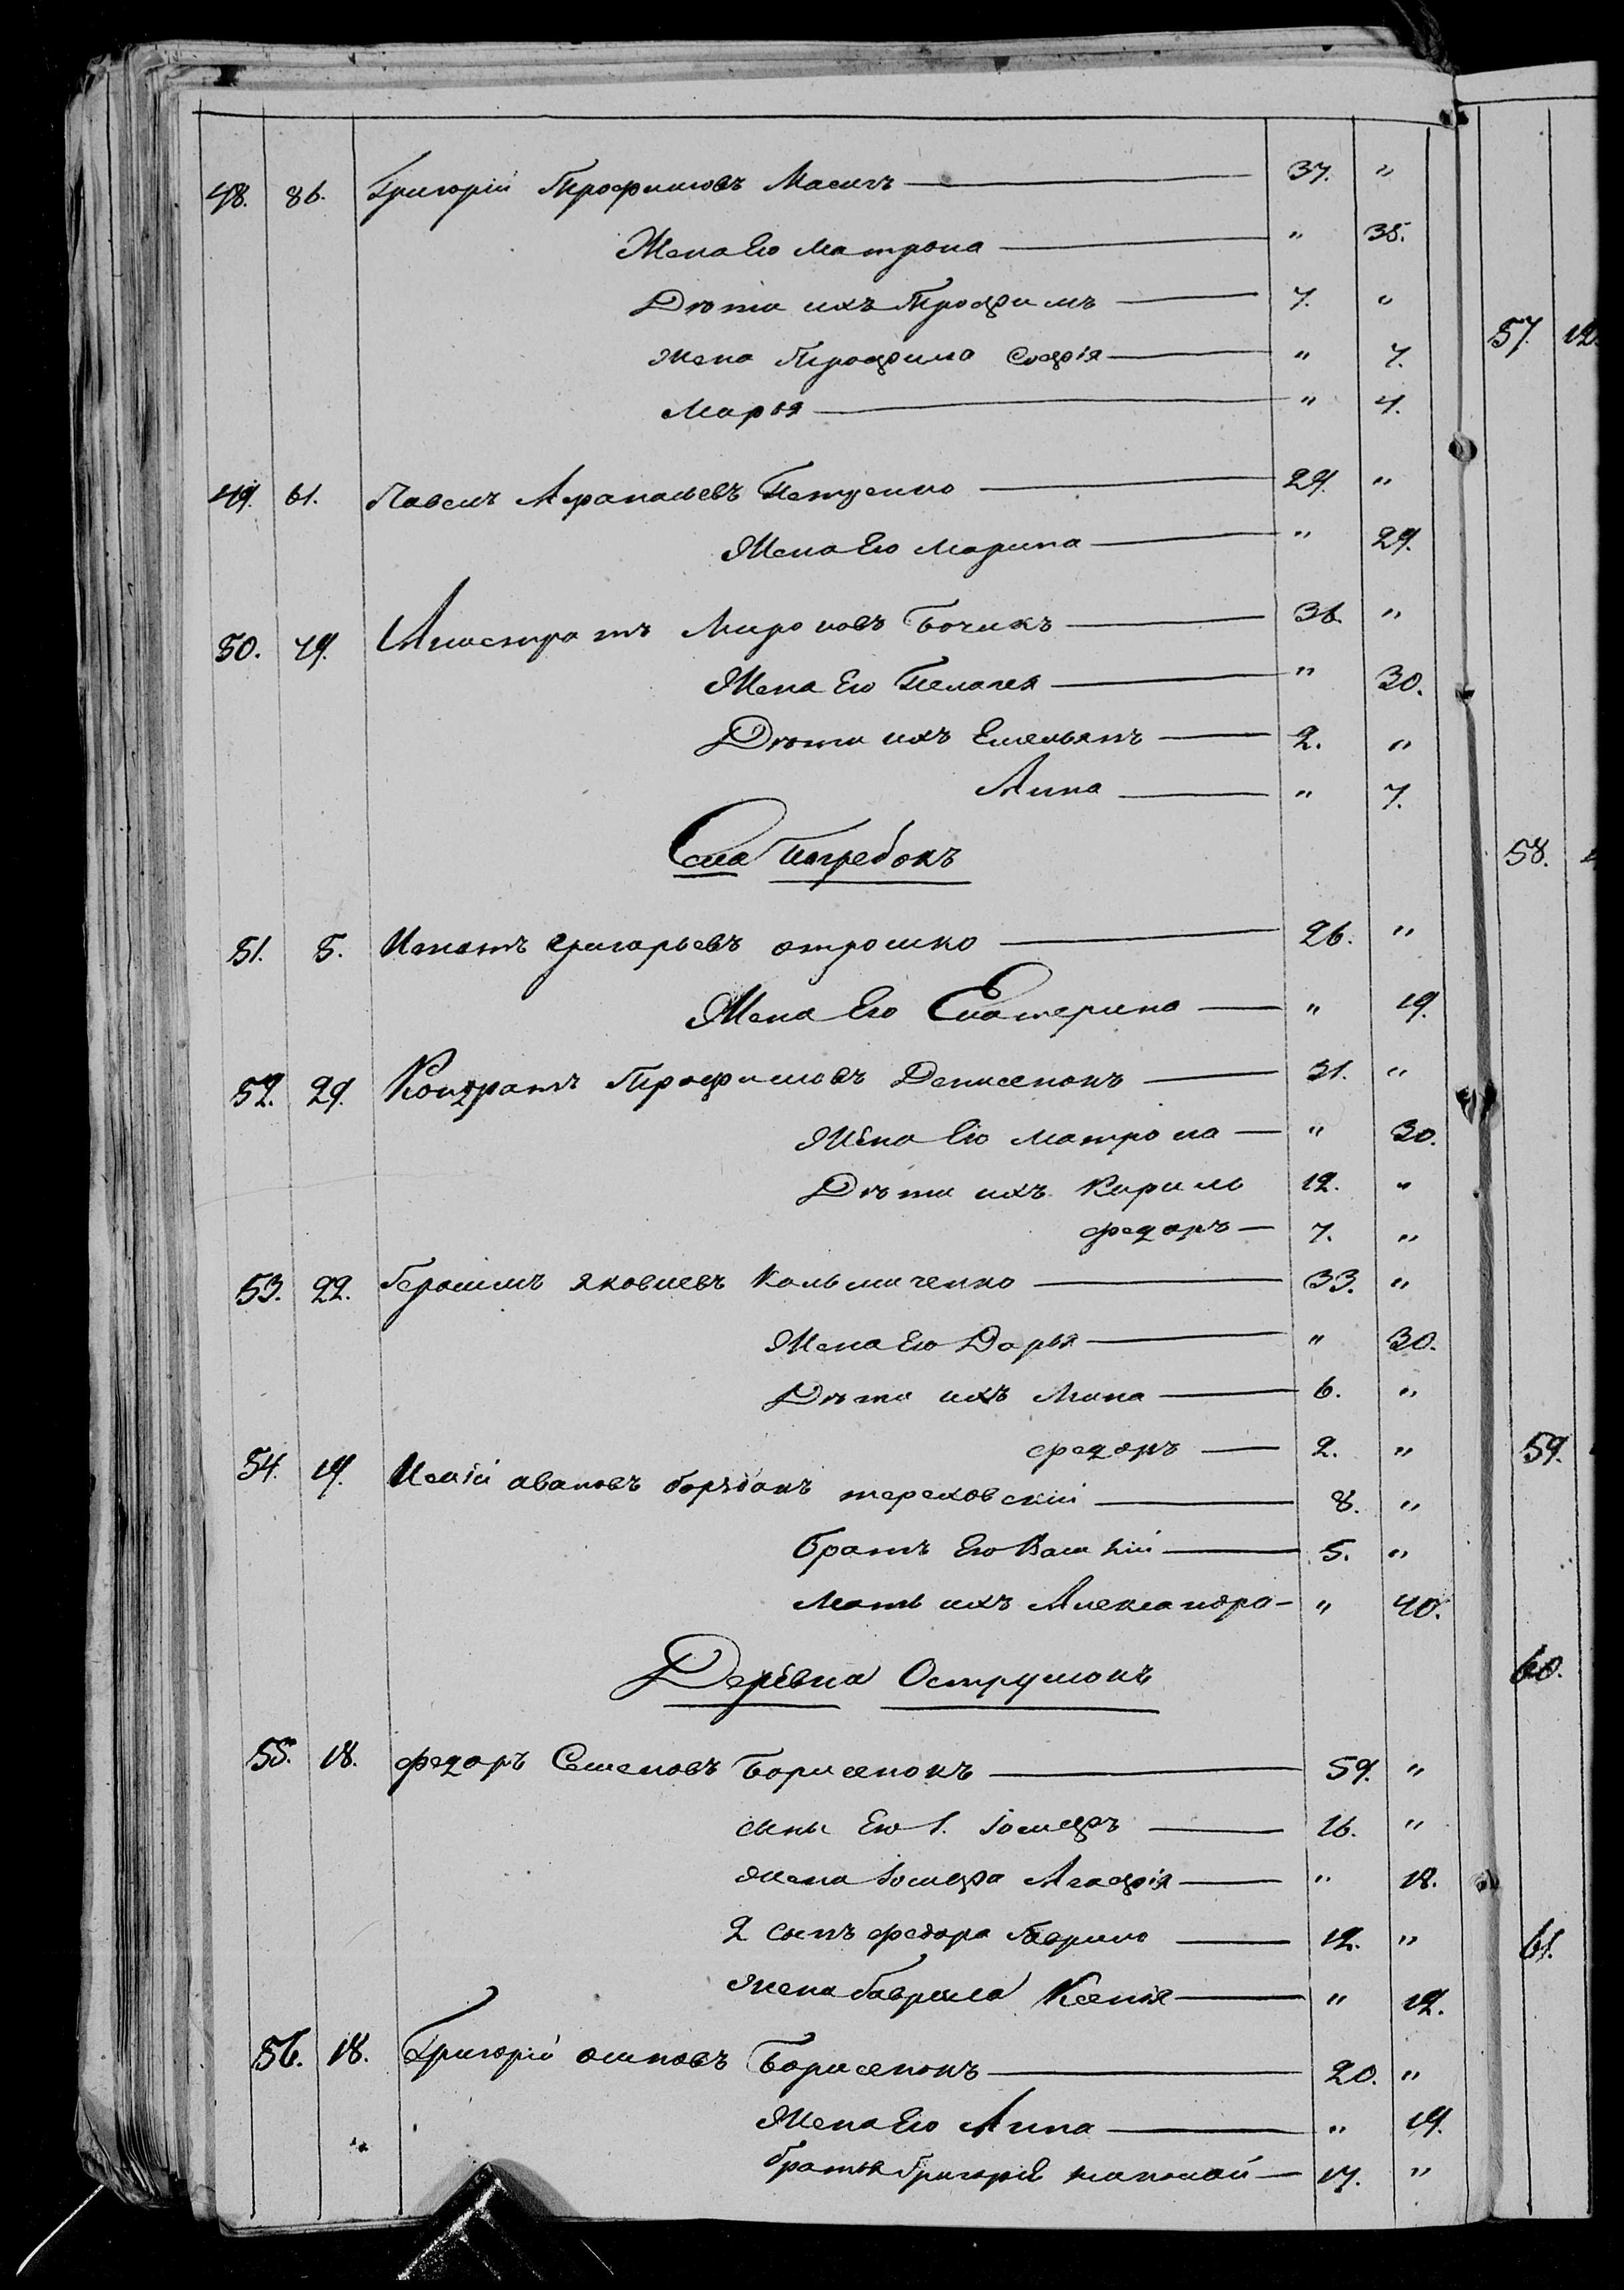 48. 86. Григорій Трофимовъ Масигъ 37. "
Жена Его Матрона " 35.
Дѣти ихъ Трофимъ 7. "
Жена Трофима Софія " 7.
Марья " 4.
49. 61. Павелъ Афанасьевъ Петренко 29. "
Жена Его Марина " 29.
50. 79. Мироновъ Бочикъ 36. "
Жена Его Пелагея " 30.
Дѣти ихъ Емельянъ 2. "
Анна " 7.
Села Погребокъ
51. 5. Игнатъ Григорьевъ отрошко 26. "
Жена Его Екатерина " 19.
52. 29. Кондратъ Трофимовъ Денисенокъ 31. "
Жена Его Матрона " 30.
Дѣти ихъ Кирилъ 12. "
Федоръ 7. "
53. 22. Герасимъ Яковлевъ Кольмиченко 33. "
Жена Его Дарья " 30.
Дѣти ихъ 6. "
Федоръ 2. "
54. 19. авановъ тереховскій 8. "
братъ Его Василій 5. "
Мать ихъ Александра " 40.
Деревна Острушокъ
55. 18. Федоръ Семеновъ Борисенокъ 59. "
сыны Его 1. Іосифъ 16. "
Жена Іосифа Агафія " 18.
2 сынъ Федора Гаврило 12. "
Жена Гаврила Ксенія " 12.
56. 18. Григорій осиповъ Борисенокъ 20. "
Жена Его Анна " 19.
братья Григорія 17. "
57. 12.
58.
59.
60.
61.